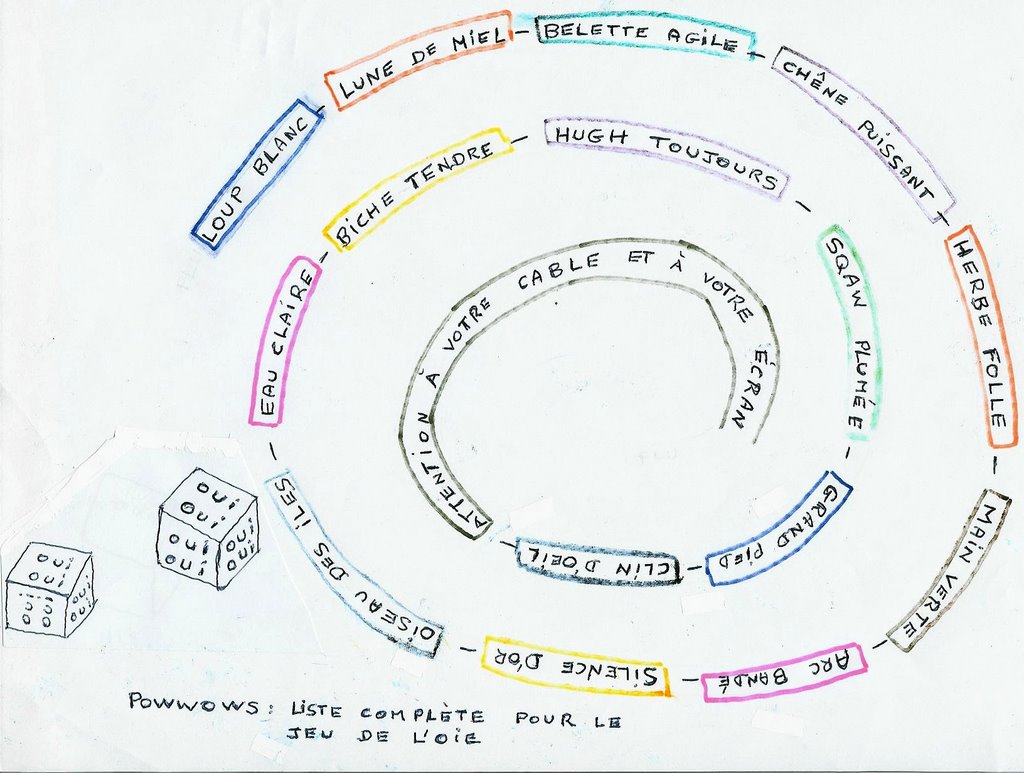 LOUP BLANC
LUNE DE MIEL
BELETTE AGILE
CHÊNE PUISSANT
HERBE FOLLE
MAIN VERTE
ARC BANDÉ
SILENCE D'OR
OISEAU DES ILES
EAU CLAIRE
BICHE TENDRE
HUGH TOUJOURS
SQAW PLUMÉE
GRAND PIED
CLIN D'OEIL
ATTENTION À VOTRE CABLE ET À VOTRE ÉCRAN
oui
oui
oui
oui
oui
oui
oui
oui
oui
oui
POWWOWS : LISTE COMPLÈTE POUR LE
JEU DE L'OIE